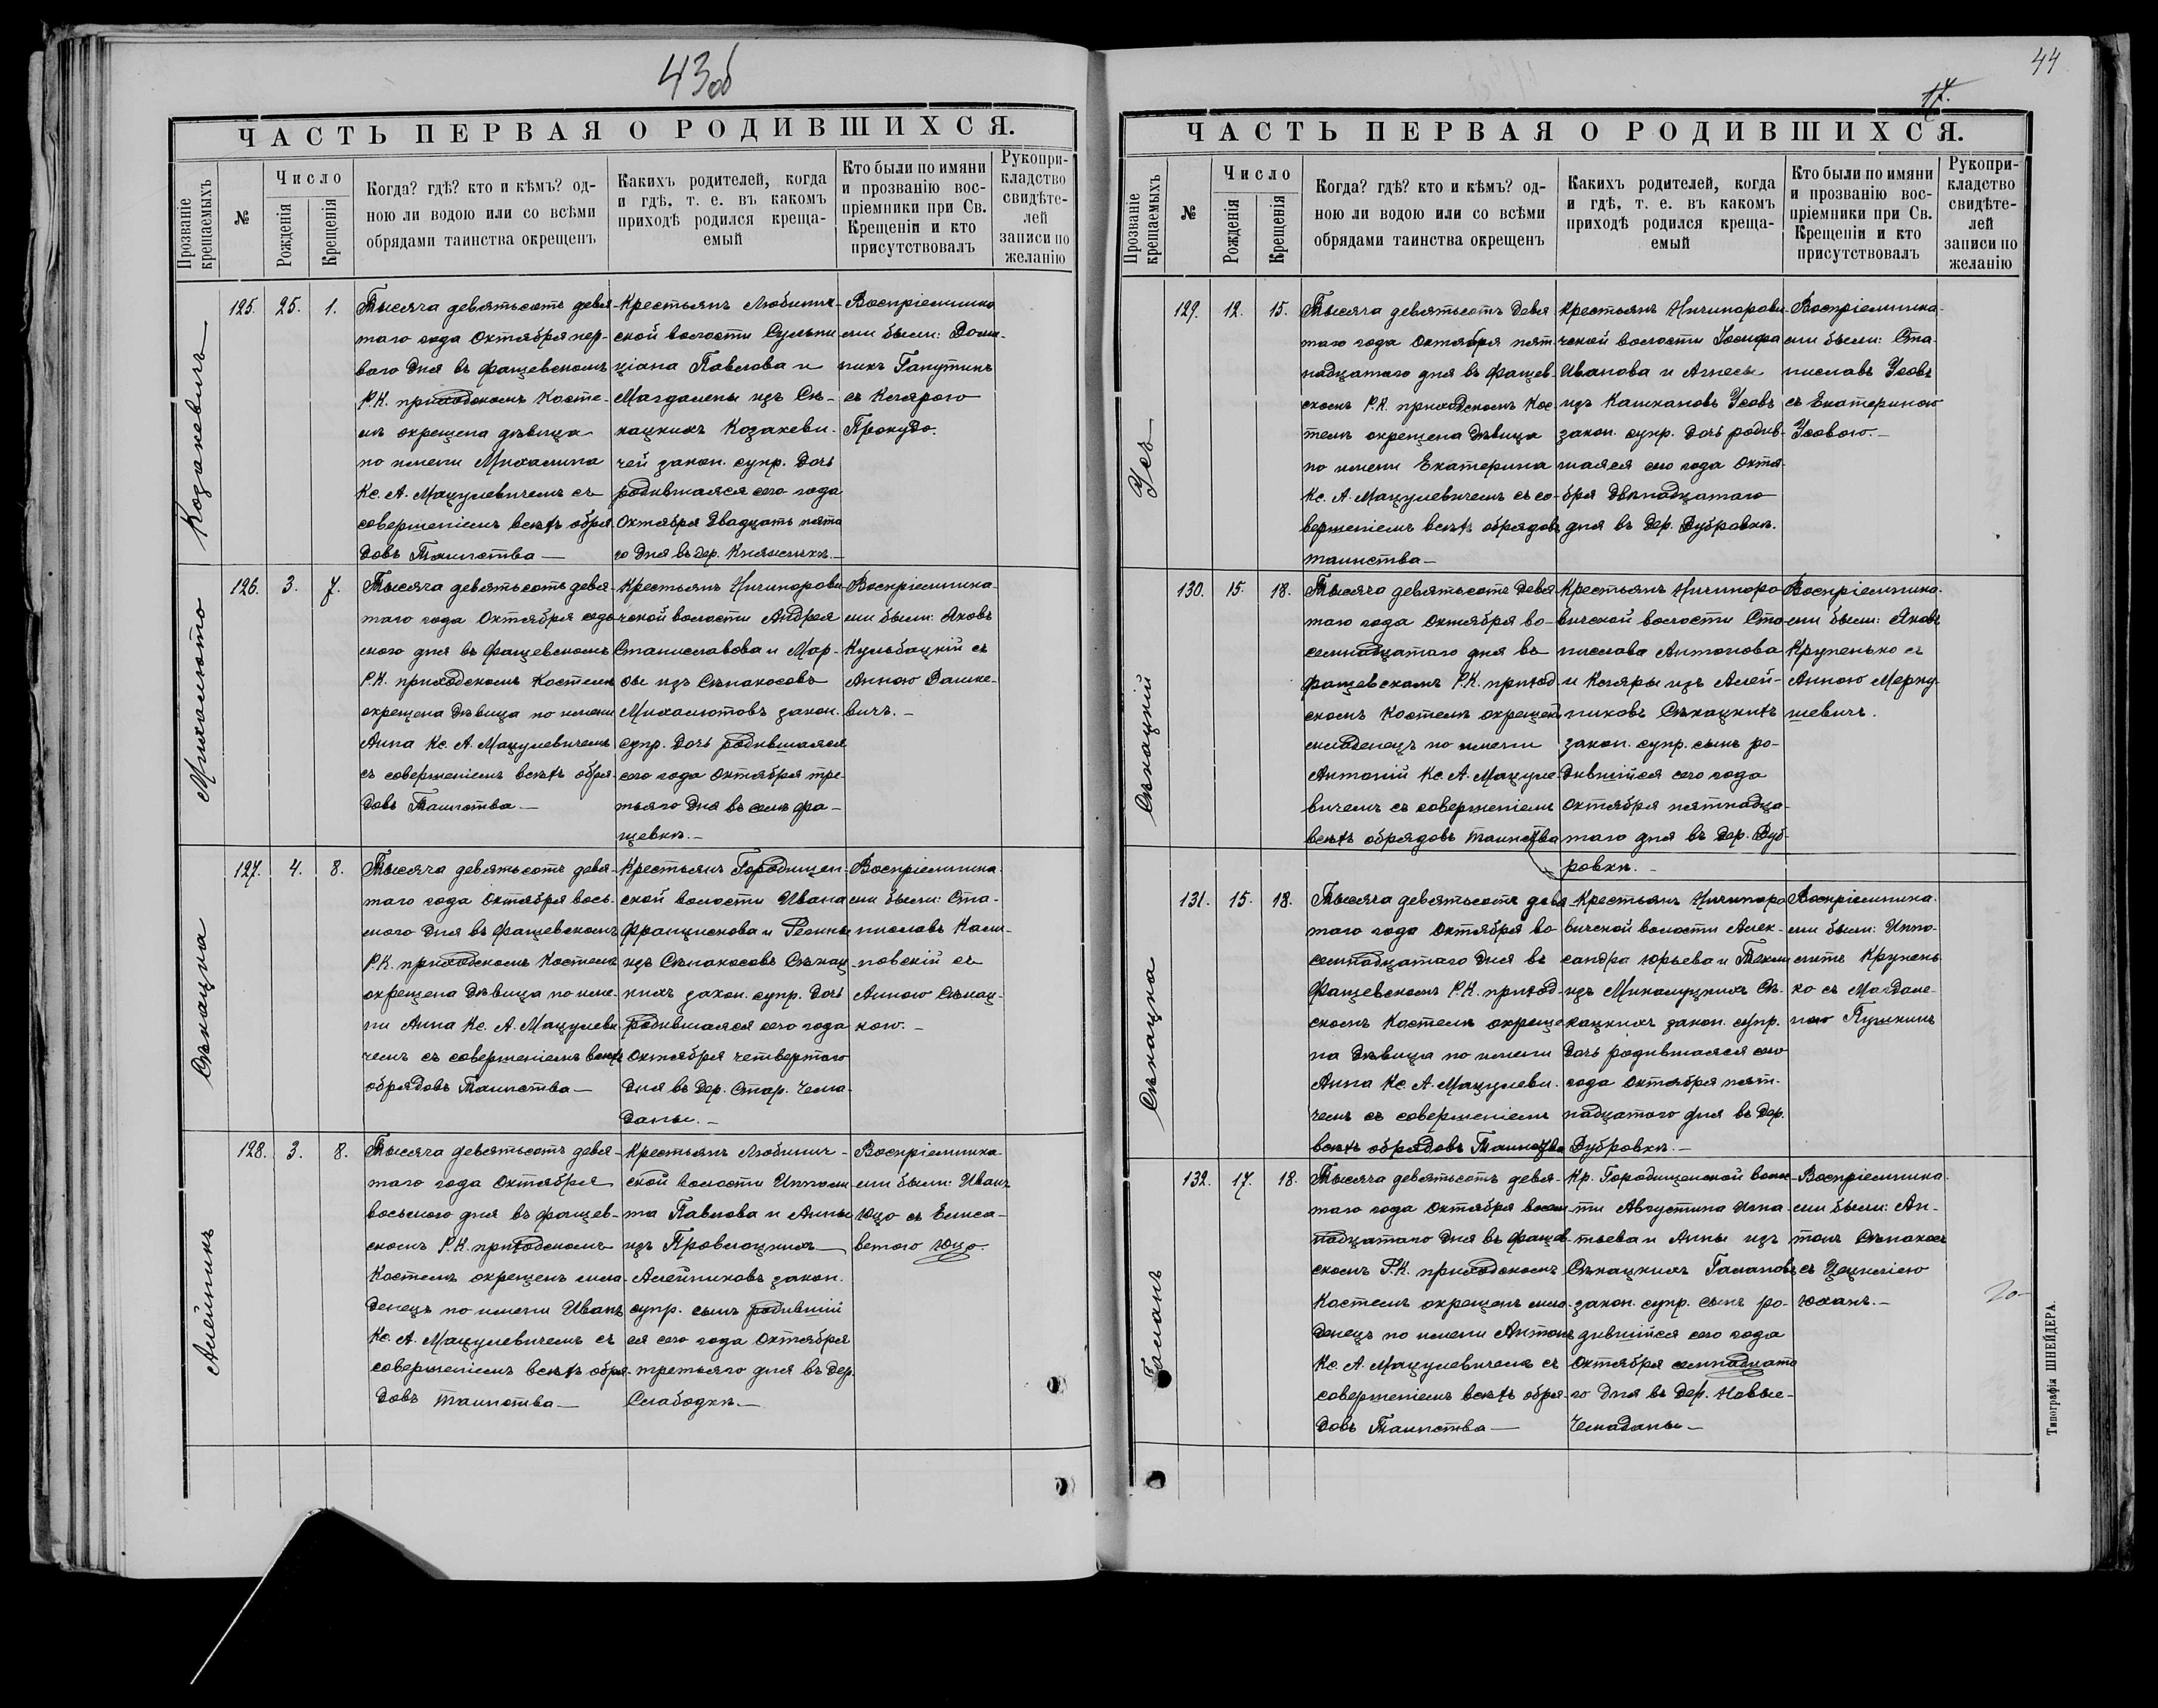 43об
ЧАСТЬ ПЕРВАЯ О РОДИВШИХСЯ.
Прозваніе крещаемыхъ
№
Число
Рожденія
Крещенія
Когда? гдѣ? кто и кѣмъ? од-
ною ли водою или со всѣми
обрядами таинства окрещенъ
Какихъ родителей, когда
и гдѣ, т. е. въ какомъ
приходѣ родился креща-
емый
Кто были по имяни
и прозванію вос-
пріемники при Св.
Крещеніи и кто
присутствовалъ
Рукопри-
кладство
свидѣте-
лей
записи по
желанію
Козакевичъ
125. 25. 1.
Тысяча девятьсотъ девя-
таго года Октября пер-
ваго дня въ Фащевскомъ
Р.К. приходскомъ Косте-
лѣ окрещена дѣвица
по имени Михалина
Кс. А. Мацулевичемъ съ
совершеніемъ всѣхъ обря
довъ Таинства —
Крестьянъ Любинич-
ской волости Сульпи
ціана Павлова и
Магдалены изъ Сѣ-
кацкихъ Козакеви-
чей закон. супр. дочь
родившаяся сего года
Октября двадцать пята
го дня въ дер. —
Воспріемника
ми были: Доми-
никъ Гапутинъ
съ Клярою
Прокудо.
Михолюто
126. 3. 7.
Тысяча девятьсотъ девя-
таго года Октября седь
мого дня въ Фащевскомъ
Р.К. приходскомъ Костелѣ
окрещена дѣвица по имени
Анна Кс. А. Мацулевичемъ
съ совершеніемъ всѣхъ обря-
довъ Таинства —
Крестьянъ Ничипорови-
чской волости Андрея
Станиславова и Мар-
ѳы изъ Сѣнокосовъ
Михолютовъ закон.
супр. дочь родившаяся
сего года Октября тре-
тьяго дня въ селѣ Фа-
щевкѣ. —
Воспріемника-
ми были: Яковъ
Кульбацкій съ
Анною Дашке-
вичъ. —
Сѣкацка
127. 4. 8.
Тысяча девятьсотъ девя-
таго года Октября вось-
мого дня въ Фащевскомъ
Р.К. приходскомъ Костелѣ
окрещена дѣвица по име-
ни Анна Кс. А. Мацулеви
чемъ съ совершеніемъ всѣхъ
обрядовъ Таинства —
Крестьянъ Городищен-
ской волости Ивана
Францискова и Регины
изъ Сѣнокосовъ Сѣкац
кихъ закон. супр. дочь
родившаяся сего года
Октября четвертого
дня въ дер. Стар. Чема-
даны. —
Воспріемника-
ми были: Ста-
ниславъ Кали-
новскій съ
Анною Сѣкац-
кою. —
Алейникъ
128. 3. 8.
Тысяча девятьсотъ девя-
таго года Октября
восьмого дня въ Фащев-
скомъ Р.К. приходскомъ
Костелѣ окрещенъ мла-
денецъ по имени Иванъ
Кс. А. Мацулевичемъ съ
совершеніемъ всѣхъ обря-
довъ таинства —
Крестьянъ Любинич-
ской волости Ипполи
та Павлова и Анны
изъ Провлоцкихъ
Алейниковъ закон.
супр. сынъ родившій
ся сего года Октября
третьяго дня въ дер.
Слабодкѣ —
Воспріемника
ми были: Иванъ
Юцо съ Елиса-
ветою Юцо.
44
17.
ЧАСТЬ ПЕРВАЯ О РОДИВШИХСЯ.
Прозваніе крещаемыхъ
№
Число
Рожденія
Крещенія
Когда? гдѣ? кто и кѣмъ? од-
ною ли водою или со всѣми
обрядами таинства окрещенъ
Какихъ родителей, когда
и гдѣ, т. е. въ какомъ
приходѣ родился креща-
емый
Кто были по имяни
и прозванію вос-
пріемники при Св.
Крещеніи и кто
присутствовалъ
Рукопри-
кладство
свидѣте-
лей
записи по
желанію
Усъ
129. 12. 15.
Тысяча девятьсотъ девя
таго года Октября пят
надцатаго дня въ Фащев-
скомъ Р.К. приходскомъ Кос-
телѣ окрещена дѣвица
по имени Екатерина
Кс. А. Мацулевичемъ съ со-
вершеніемъ всѣхъ обрядовъ
таинства —
Крестьянъ Ничипорови-
чской волости Іосифа
Иванова и Агнесы
изъ Кашкановъ Усовъ
закон. супр. дочь родив-
шаяся сего года Октя-
бря двѣнадцатаго
дня въ дер. Дубровкѣ.
Воспріемника-
ми были: Ста-
ниславъ Усовъ
съ Екатериною
Усовою. —
Сѣкацкій
130. 15. 18.
Тысяча девятьсотъ девя-
таго года Октября во-
семнадцатаго дня въ
Фащевскомъ Р.К. приход-
скомъ Костелѣ окрещенъ
младенецъ по имени
Антоній Кс. А. Мацуле-
вичемъ съ совершеніемъ
всѣхъ обрядовъ таинства
Крестьянъ Ничипоро
вичской волости Ста-
нислава Антонова
и Кляры изъ Алей-
никовъ Сѣкацкихъ
закон. супр. сынъ ро-
дившійся сего года
Октября пятнадца-
таго дня въ дер. Дуб-
ровкѣ. —
Воспріемника-
ми были: Яковъ
Крупенько съ
Анною Мерку-
шевичъ.
Сѣкацка
131. 15. 18.
Тысяча девятьсотъ девя-
таго года Октября во
семнадцатаго дня въ
Фащевскомъ Р.К. приход-
скомъ Костелѣ окреще
на дѣвица по имени
Анна Кс. А. Мацулеви-
чемъ съ совершеніемъ
всѣхъ обрядовъ Таинства
Крестьянъ Ничипоро
вичской волости Алек-
сандра Юрьева и Текли
изъ Микалуцкихъ Сѣ-
кацкихъ закон. супр.
дочь родившаяся сего
года Октября пят-
надцатого дня въ дер.
Дубровкѣ. —
Воспріемника-
ми были: Иппо-
литъ Крупень
ко съ Магдале-
ною Пушкинъ
Гаманъ
132. 17. 18.
Тысяча девятьсотъ девя-
таго года Октября восем-
надцатаго дня въ Фащев
скомъ Р.К. приходскомъ
Костелѣ окрещенъ мла-
денецъ по имени Антонъ
Кс. А. Мацулевичемъ съ
совершеніемъ всѣхъ обря-
довъ Таинства —
Кр. Городищенской воло-
сти Августина Игна-
тьева и Анны изъ
Сѣкацкихъ Гамановъ
закон. супр. сынъ ро-
дившійся сего года
Октября семнадцата
го дня въ дер. Новые-
Чемаданы —
Воспріемника-
ми были: Ан-
тонъ Сѣнокосъ
съ Цециліею
Юхакъ. —
Типографія ШНЕЙДЕРА.